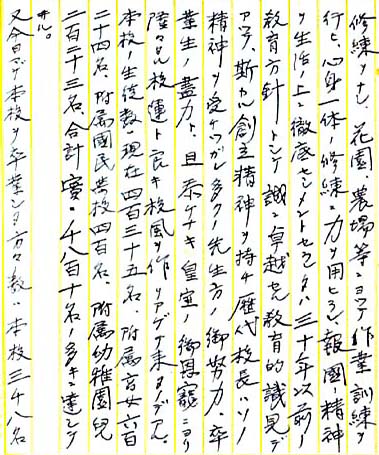 修練ヲナシ、花園、農場等ニヨツテ作業訓練ヲ
行ヒ、心身一体ノ修練ニ力ヲ用ヒ、報國ノ精神
ヲ生活ノ上ニ徹底センメントセラレタハ三十年以前ノ
教育方針トシテ誠ニ卓越セル教育的識見デ
アツテ、斯カル創立精神ヲ持チ歴代校長ハソノ
精神ヲ受ケツガレ多クノ先生方ノ御努力、卒
業生ノ盡力ト、且恭ケナキ皇室ノ御恩寵ニヨリ
隆々タル校運ト良キ校風ヲ作リアゲテ来タデアル。
本校ノ生徒数ハ現在四百三十五名、附属高女六百
二十四名、附属國民学校四百名、附属幼稚園児
二百二十三名、合計實ニ千八百十名ノ多キニ達シテ
ヰル。
又今日マデ本校ヲ卒業シタ方々ノ数ハ本校三千八名